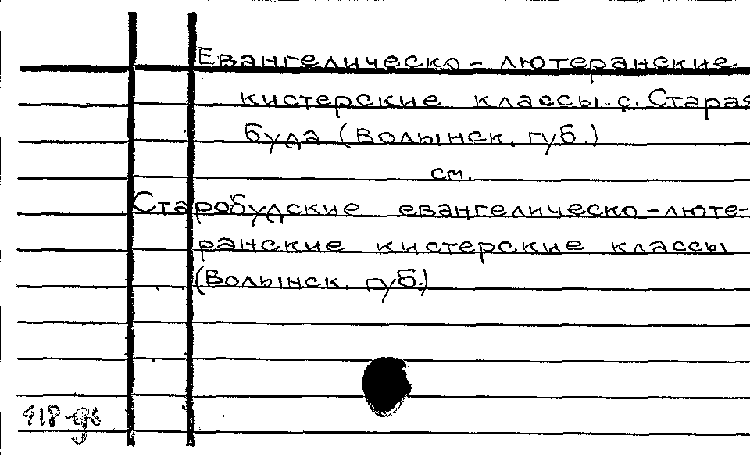 Евангелическо-лютеранские
кистерские классы с. Старая
Буда (Волынск. губ.)
см.
Старобудские евангелическо-люте-
ранские кистерские классы
(Волынск. губ.)